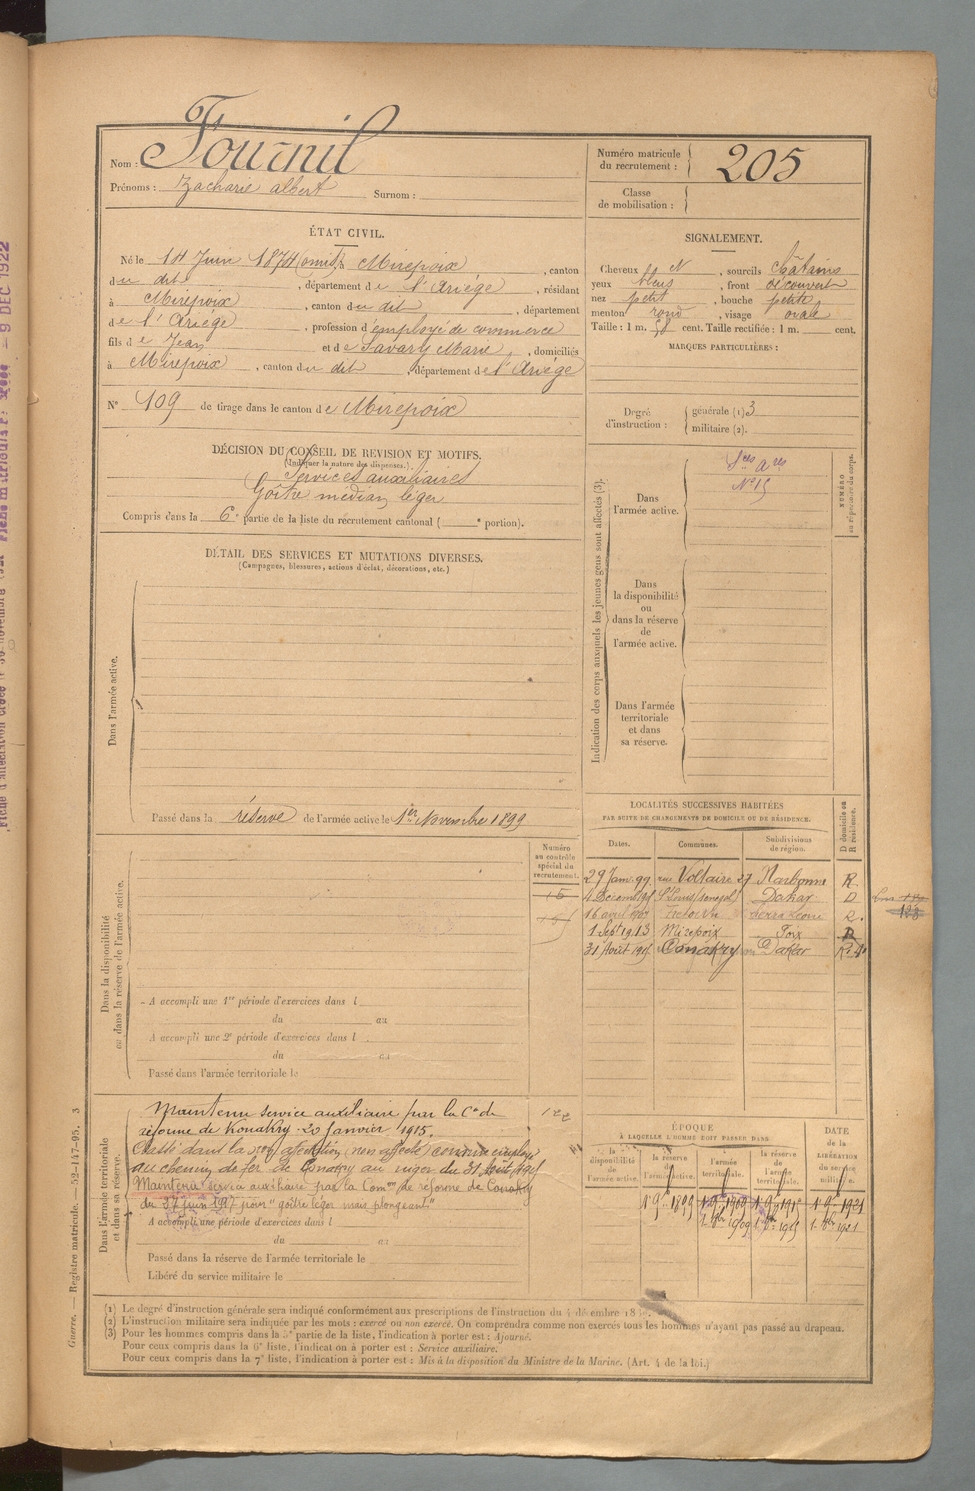 Nom : Fournil
Prénoms : Zacharie albert Surnom :
Numéro matricule du recrutement : 205
Classe de mobilisation :
ÉTAT CIVIL.
Né le Juin à Mirepoix, canton
du dit, département de l'Ariège, résidant
à Mirepoix, canton du dit, département
de l'Ariège, profession d'employé de commerce
fils de Jean et de Savary Marie, domiciliés
à Mirepoix, canton du dit, département de l'Ariège
N° 109 de tirage dans le canton de Mirepoix
SIGNALEMENT.
Cheveux et N, sourcils Châtains
yeux bleus, front découvert
nez petit, bouche petite
menton rond, visage ovale
Taille : 1 m. 58 cent. Taille rectifiée : 1 m. cent.
MARQUES PARTICULIÈRES :
Degré d'instruction : générale (1) 3
militaire (2).
DÉCISION DU CONSEIL DE REVISION ET MOTIFS.
(Indiquer la nature des dispenses.)
Services auxiliaires
Goître médian léger
Compris dans la 6e partie de la liste du recrutement cantonal ( e portion).
DÉTAIL DES SERVICES ET MUTATIONS DIVERSES.
(Campagnes, blessures, actions d'éclat, décorations, etc.)
Dans l'armée active.
Passé dans la réserve de l'armée active le 1er Novembre 1899
Indication des corps auxquels les jeunes gens sont affectés (3).
Dans l'armée active.
Sces ares
N° 15
NUMÉRO au répertoire du corps.
Dans la disponibilité ou dans la réserve de l'armée active.
Dans l'armée territoriale et dans sa réserve.
LOCALITÉS SUCCESSIVES HABITÉES
PAR SUITE DE CHANGEMENTS DE DOMICILE OU DE RÉSIDENCE.
Dates. Communes. Subdivisions de région. D domicile ou R résidence.
29 Janv. 99 rue Voltaire 27 Narbonne R
St Louis Dakar D
16 avril 1907 R.
1 Sept 1913 Mirepoix Foix
31 Août 1915 Conakry Dakar
Dans la disponibilité ou dans la réserve de l'armée active.
Numéro au contrôle spécial du recrutement.
15
A accompli une 1re période d'exercices dans l
du au
A accompli une 2e période d'exercices dans l
du au
Passé dans l'armée territoriale le
Dans l'armée territoriale et dans sa réserve.
Maintenu service auxiliaire par la Con de
réforme de Konakry 20 Janvier 1915.
dans la affectation (non affecté) comme employé
au chemin de fer de Conakry au du 31 Août 1915
Maintenu service auxiliaire par la Comon de réforme de Conakry
du juin 1917 pour "goître léger mais plongeant"
A accompli une période d'exercices dans l
du au
Passé dans la réserve de l'armée territoriale le
Libéré du service militaire le
ÉPOQUE
À LAQUELLE L'HOMME DOIT PASSER DANS
la disponibilité de l'armée active. la réserve de l'armée active. l'armée territoriale. la réserve de l'armée territoriale.
DATE de la LIBÉRATION du service militaire.
1 9bre 1899
(1) Le degré d'instruction générale sera indiqué conformément aux prescriptions de l'instruction du 4 décembre
(2) L'instruction militaire sera indiquée par les mots : exercé ou non exercé. On comprendra comme non exercés tous les hommes n'ayant pas passé au drapeau.
(3) Pour les hommes compris dans la 5e partie de la liste, l'indication à porter est : Ajourné.
Pour ceux compris dans la 6e liste, l'indication à porter est : Service auxiliaire.
Pour ceux compris dans la 7e liste, l'indication à porter est : Mis à la disposition du Ministre de la Marine. (Art. 4 de la loi.)
Guerre. — Registre matricule. — 52-147-95. 3
9 DEC 1922